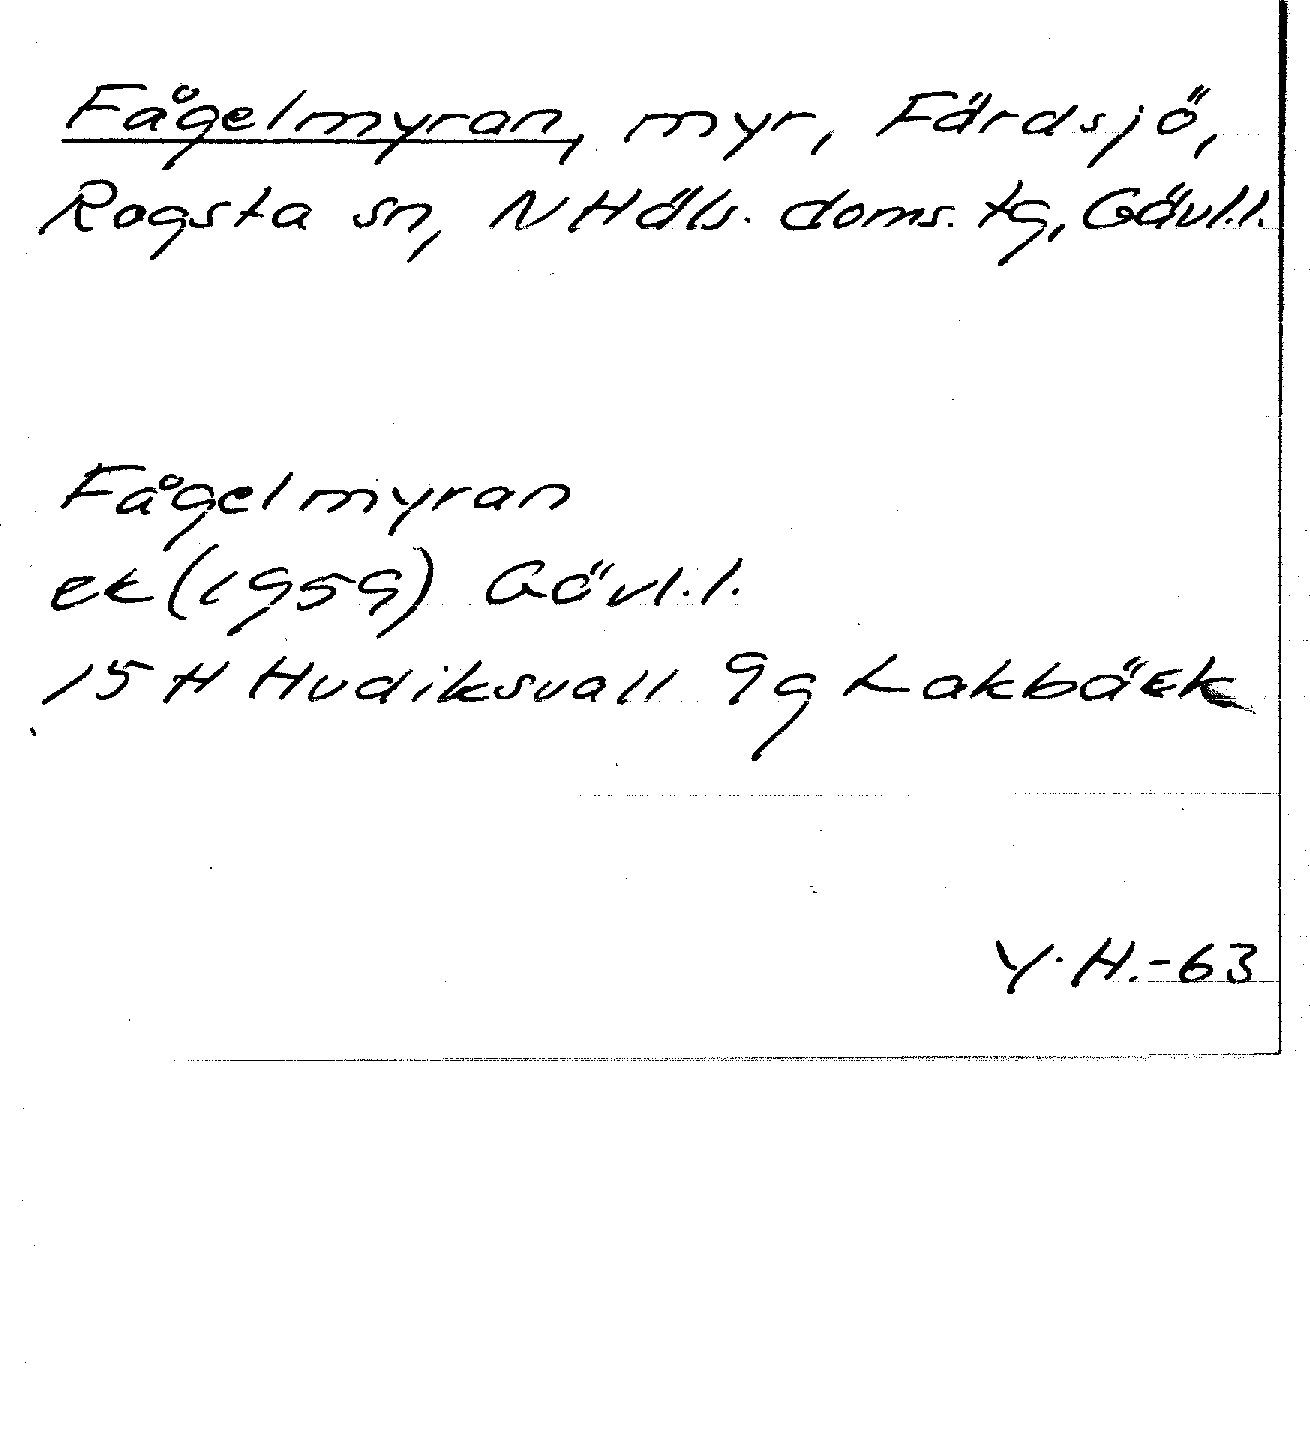 Fågelmyran, myr, Färdsjö,
Rogsta sn, N Häls. doms. tg, Gävl.l.
Fågelmyran
ek (1959) Gävl.l.
15 H Hudiksvall 9g Lakbäck
Y.H.-63